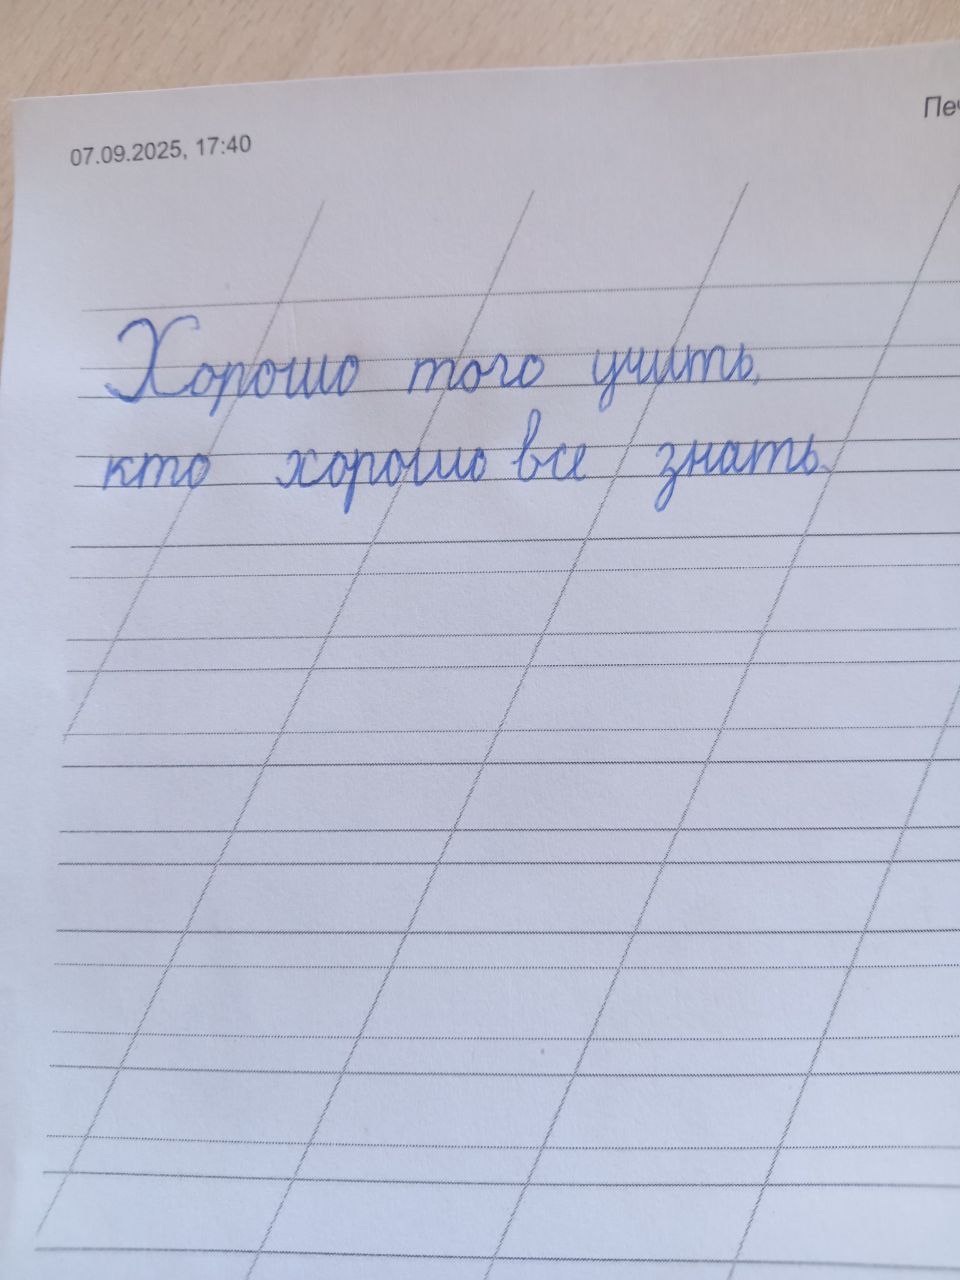 07.09.2025, 17:40
Хорошо того учить,
кто хорошо все знать.